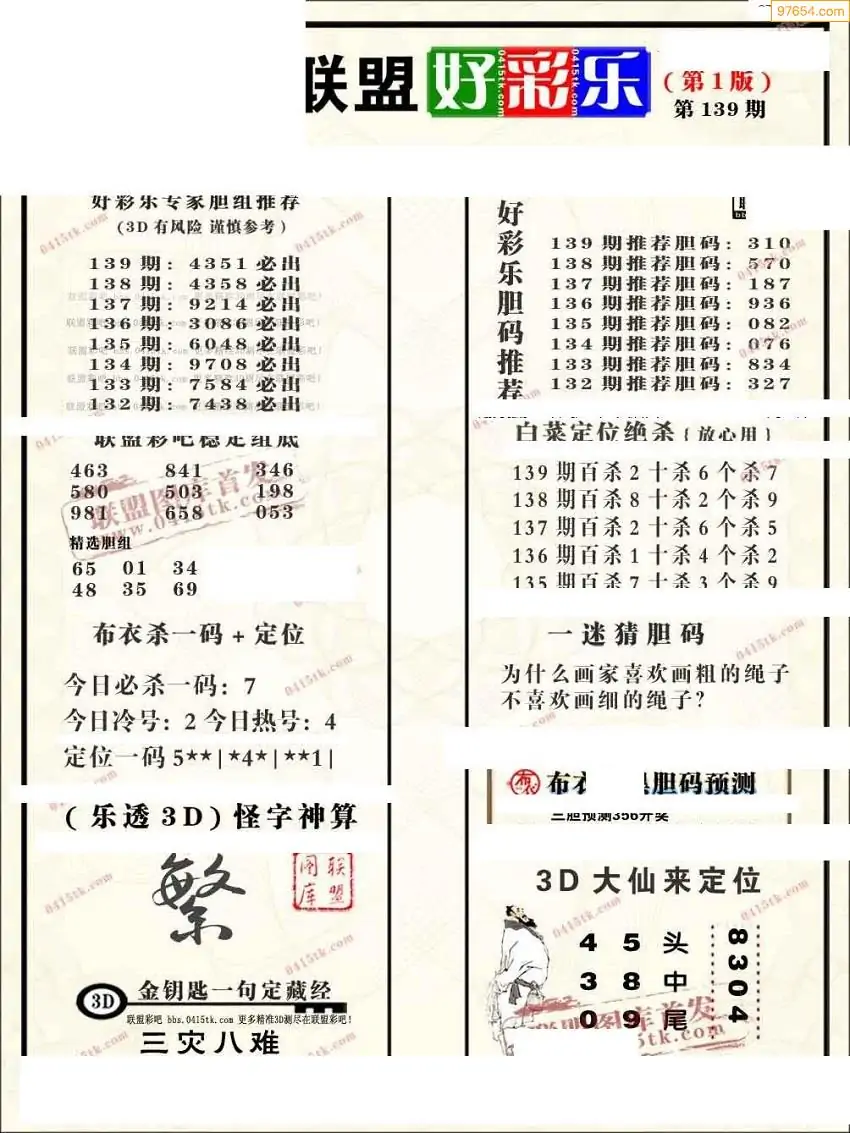 97654.com
联盟 好彩乐 (第1版)
0415tk.com 0415tk.com
第139期
好彩乐专家胆组推荐
(3D有风险 谨慎参考)
139期: 4351必出
138期: 4358必出
137期: 9214必出
136期: 3086必出
135期: 6048必出
134期: 9708必出
133期: 7584必出
132期: 7438必出
联盟彩吧稳定组底
463 841 346
580 503 198
981 658 053
联盟图库首发
www.0415tk.com
精选胆组
65 01 34
48 35 69
布衣杀一码+定位
今日必杀一码: 7
今日冷号: 2 今日热号: 4
定位一码 5**|*4*|**1|
(乐透3D)怪字神算
繁
联盟图库
3D 金钥匙一句定藏经
联盟彩吧 bbs.0415tk.com 更多精准3D测尽在联盟彩吧!
三灾八难
好彩乐胆码推荐
139期推荐胆码: 310
138期推荐胆码: 570
137期推荐胆码: 187
136期推荐胆码: 936
135期推荐胆码: 082
134期推荐胆码: 076
133期推荐胆码: 834
132期推荐胆码: 327
白菜定位绝杀{放心用}
139期百杀2十杀6个杀7
138期百杀8十杀2个杀9
137期百杀2十杀6个杀5
136期百杀1十杀4个杀2
135期百杀7十杀3个杀9
一迷猜胆码
为什么画家喜欢画粗的绳子
不喜欢画细的绳子?
布衣 布 胆码预测
三胆预测356开奖
3D大仙来定位
4 5 头
3 8 中
0 9 尾
8304
联盟图库首发
0415tk.com